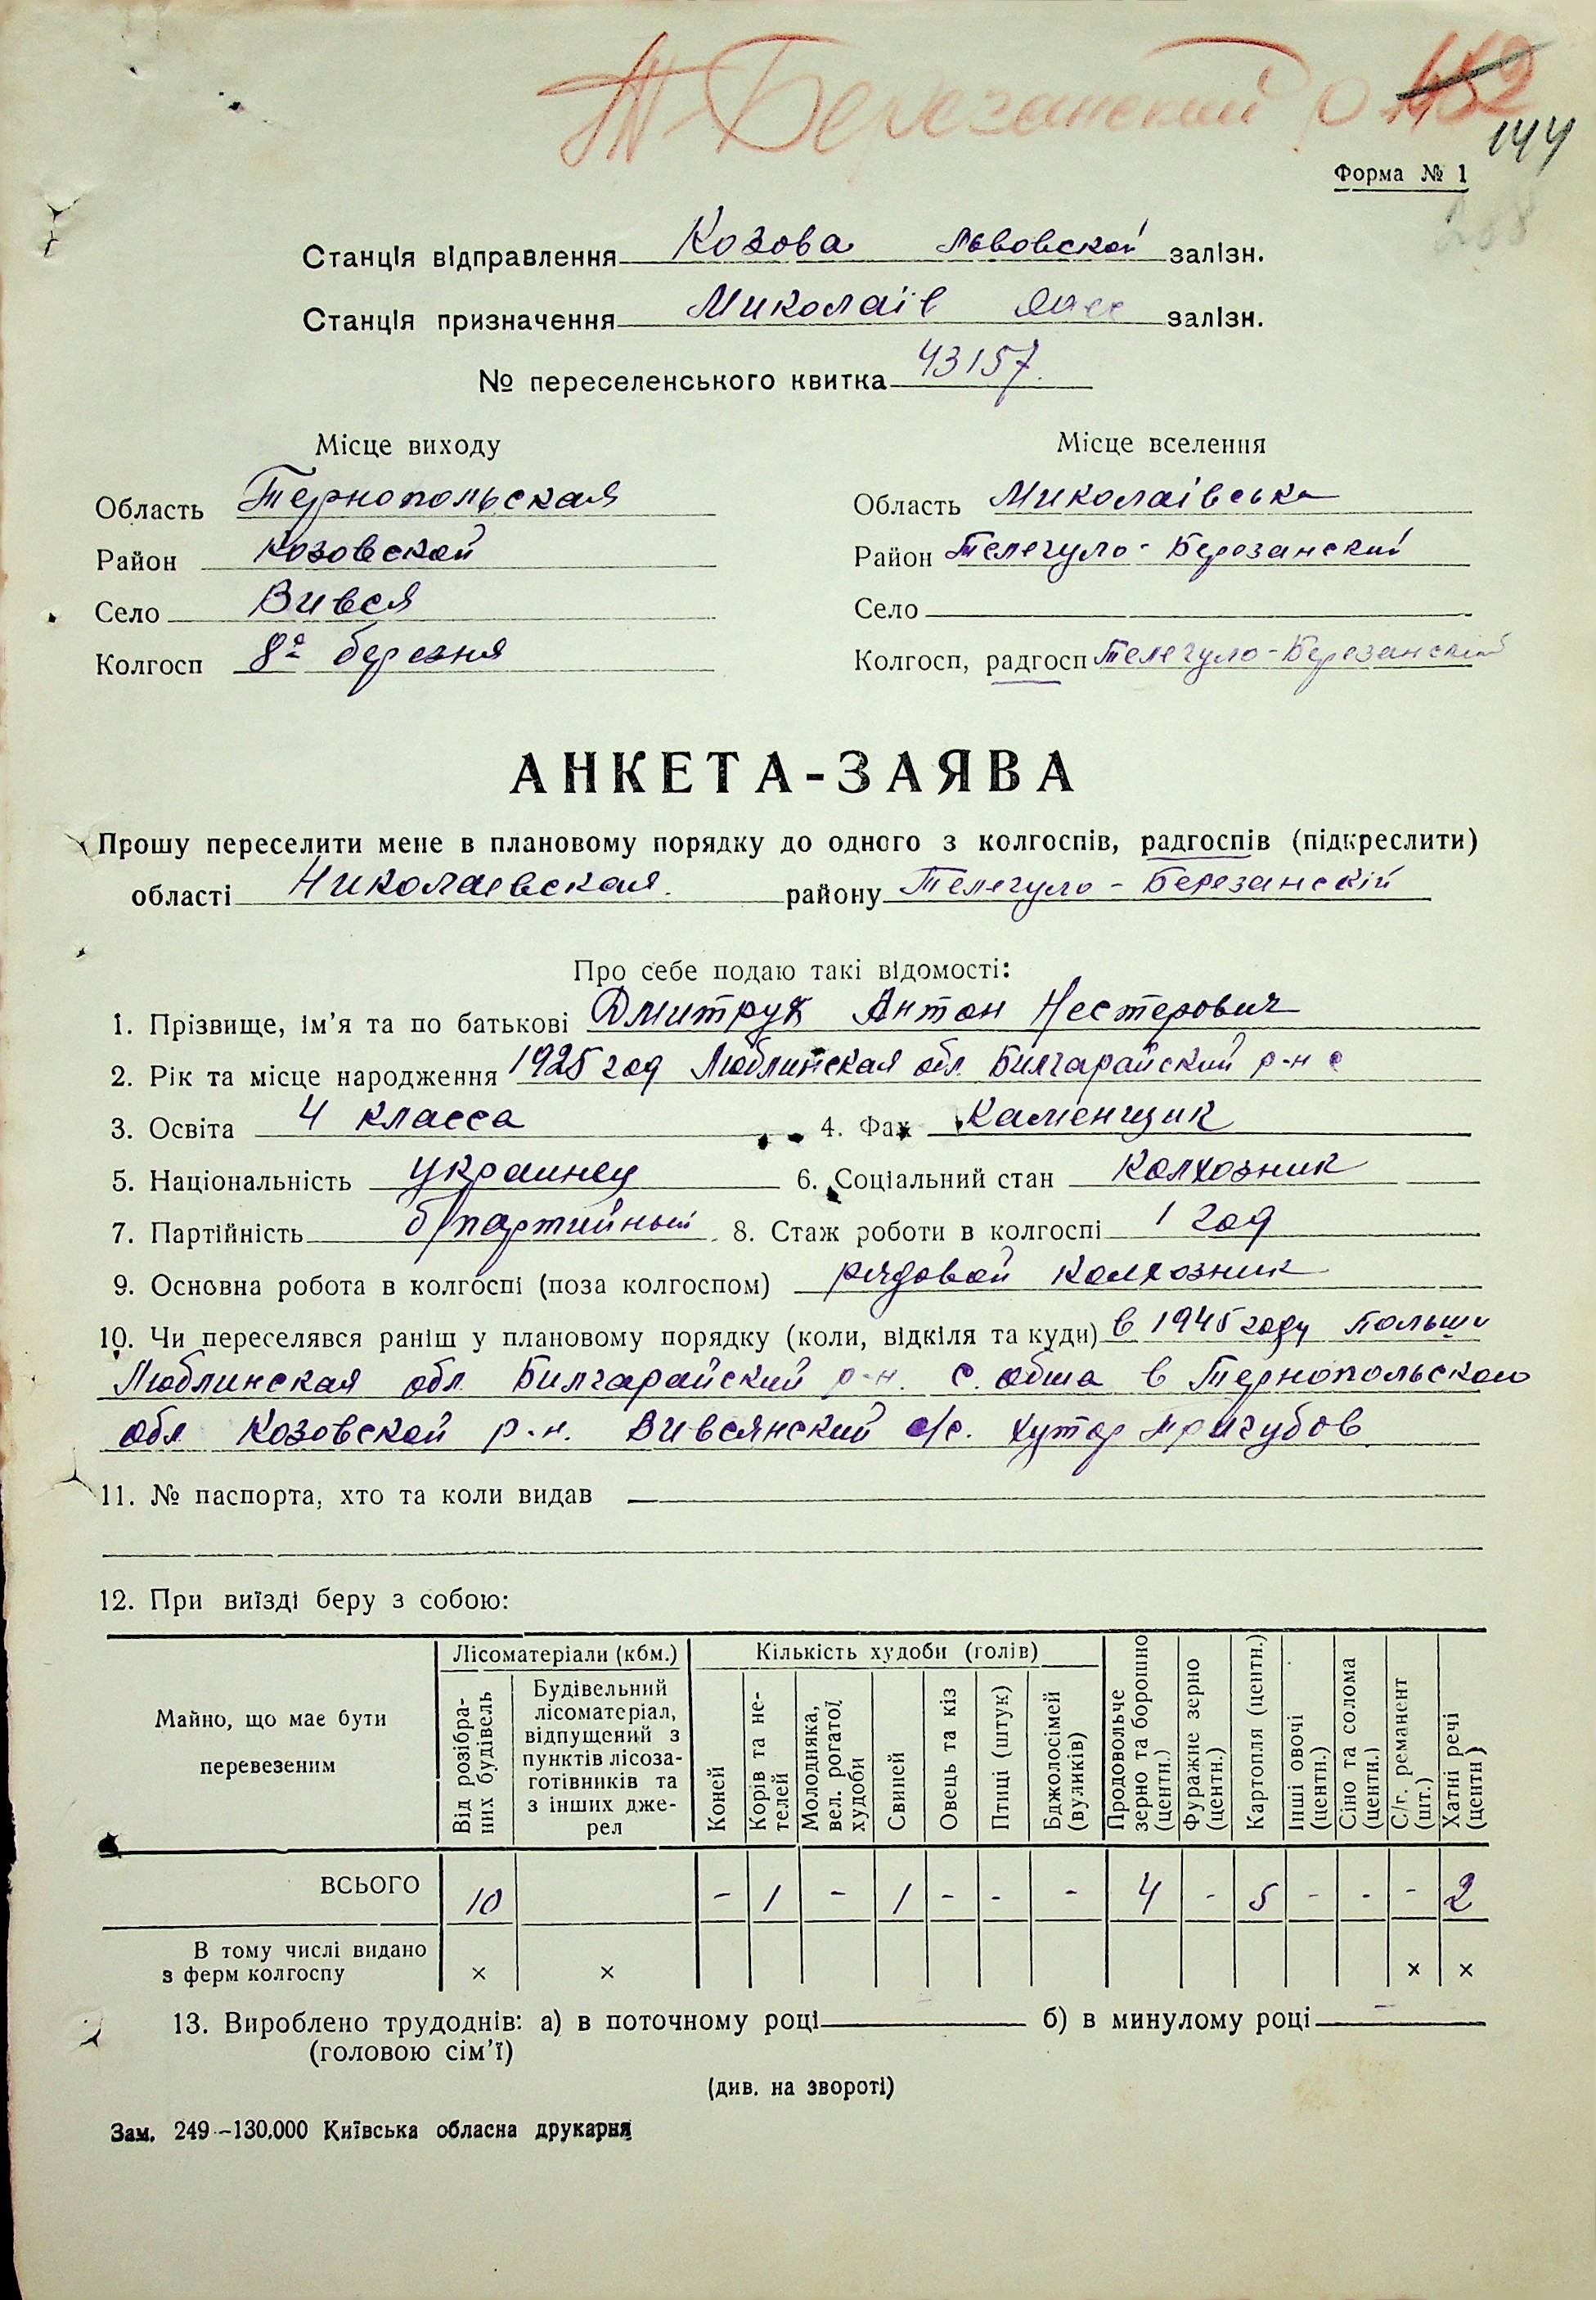 Т-Березанский р
144
Форма № 1
Станція відправлення Козова Львовской залізн.
Станція призначення Миколаїв Одес залізн.
№ переселенського квитка 43157.
Місце виходу Місце вселення
Область Тернопольская Область Миколаївська
Район Козовской Район Телегуло-Березанский
Село Вився Село
Колгосп 8е березня Колгосп, радгосп Телегуло-Березанский
АНКЕТА-ЗАЯВА
Прошу переселити мене в плановому порядку до одного з колгоспів, радгоспів (підкреслити)
області Николаевская. району Телегуло-Березанскій
Про себе подаю такі відомості:
1. Прізвище, ім’я та по батькові Дмитрук Антон Нестерович
2. Рік та місце народження 1925 год Люблинская обл. Билгарайский р-н с
3. Освіта 4 класса 4. Фах Каменщик
5. Національність украинец 6. Соціальний стан Колхозник
7. Партійність б/партийный 8. Стаж роботи в колгоспі 1 год
9. Основна робота в колгоспі (поза колгоспом) рядовой колхозник
10. Чи переселявся раніш у плановому порядку (коли, відкіля та куди) в 1945 году Польши
Люблинская обл. Билгарайский р-н. с. Обша в Тернопольского
обл Козовской р-н. Вивсянский с/с. хутор Пригубов
11. № паспорта, хто та коли видав
12. При виїзді беру з собою:
Майно, що має бути перевезеним
Лісоматеріали (кбм.)
Від розібраних будівель
Будівельний лісоматеріал, відпущений з пунктів лісозаготівників та з інших джерел
Кількість худоби (голів)
Коней
Корів та нетелей
Молодняка, вел. рогатої худоби
Свиней
Овець та кіз
Птиці (штук)
Бджолосімей (вуликів)
Продовольче зерно та борошно (центн.)
Фуражне зерно (центн.)
Картопля (центн.)
Інші овочі (центн.)
Сіно та солома (центн.)
С/г. реманент (шт.)
Хатні речі (центн)
ВСЬОГО 10 - 1 - 1 - - - 4 - 5 - - - 2
В тому числі видано
з ферм колгоспу × × × ×
13. Вироблено трудоднів: а) в поточному році — б) в минулому році —
(головою сім’ї)
(див. на звороті)
Зам. 249—130.000 Київська обласна друкарня